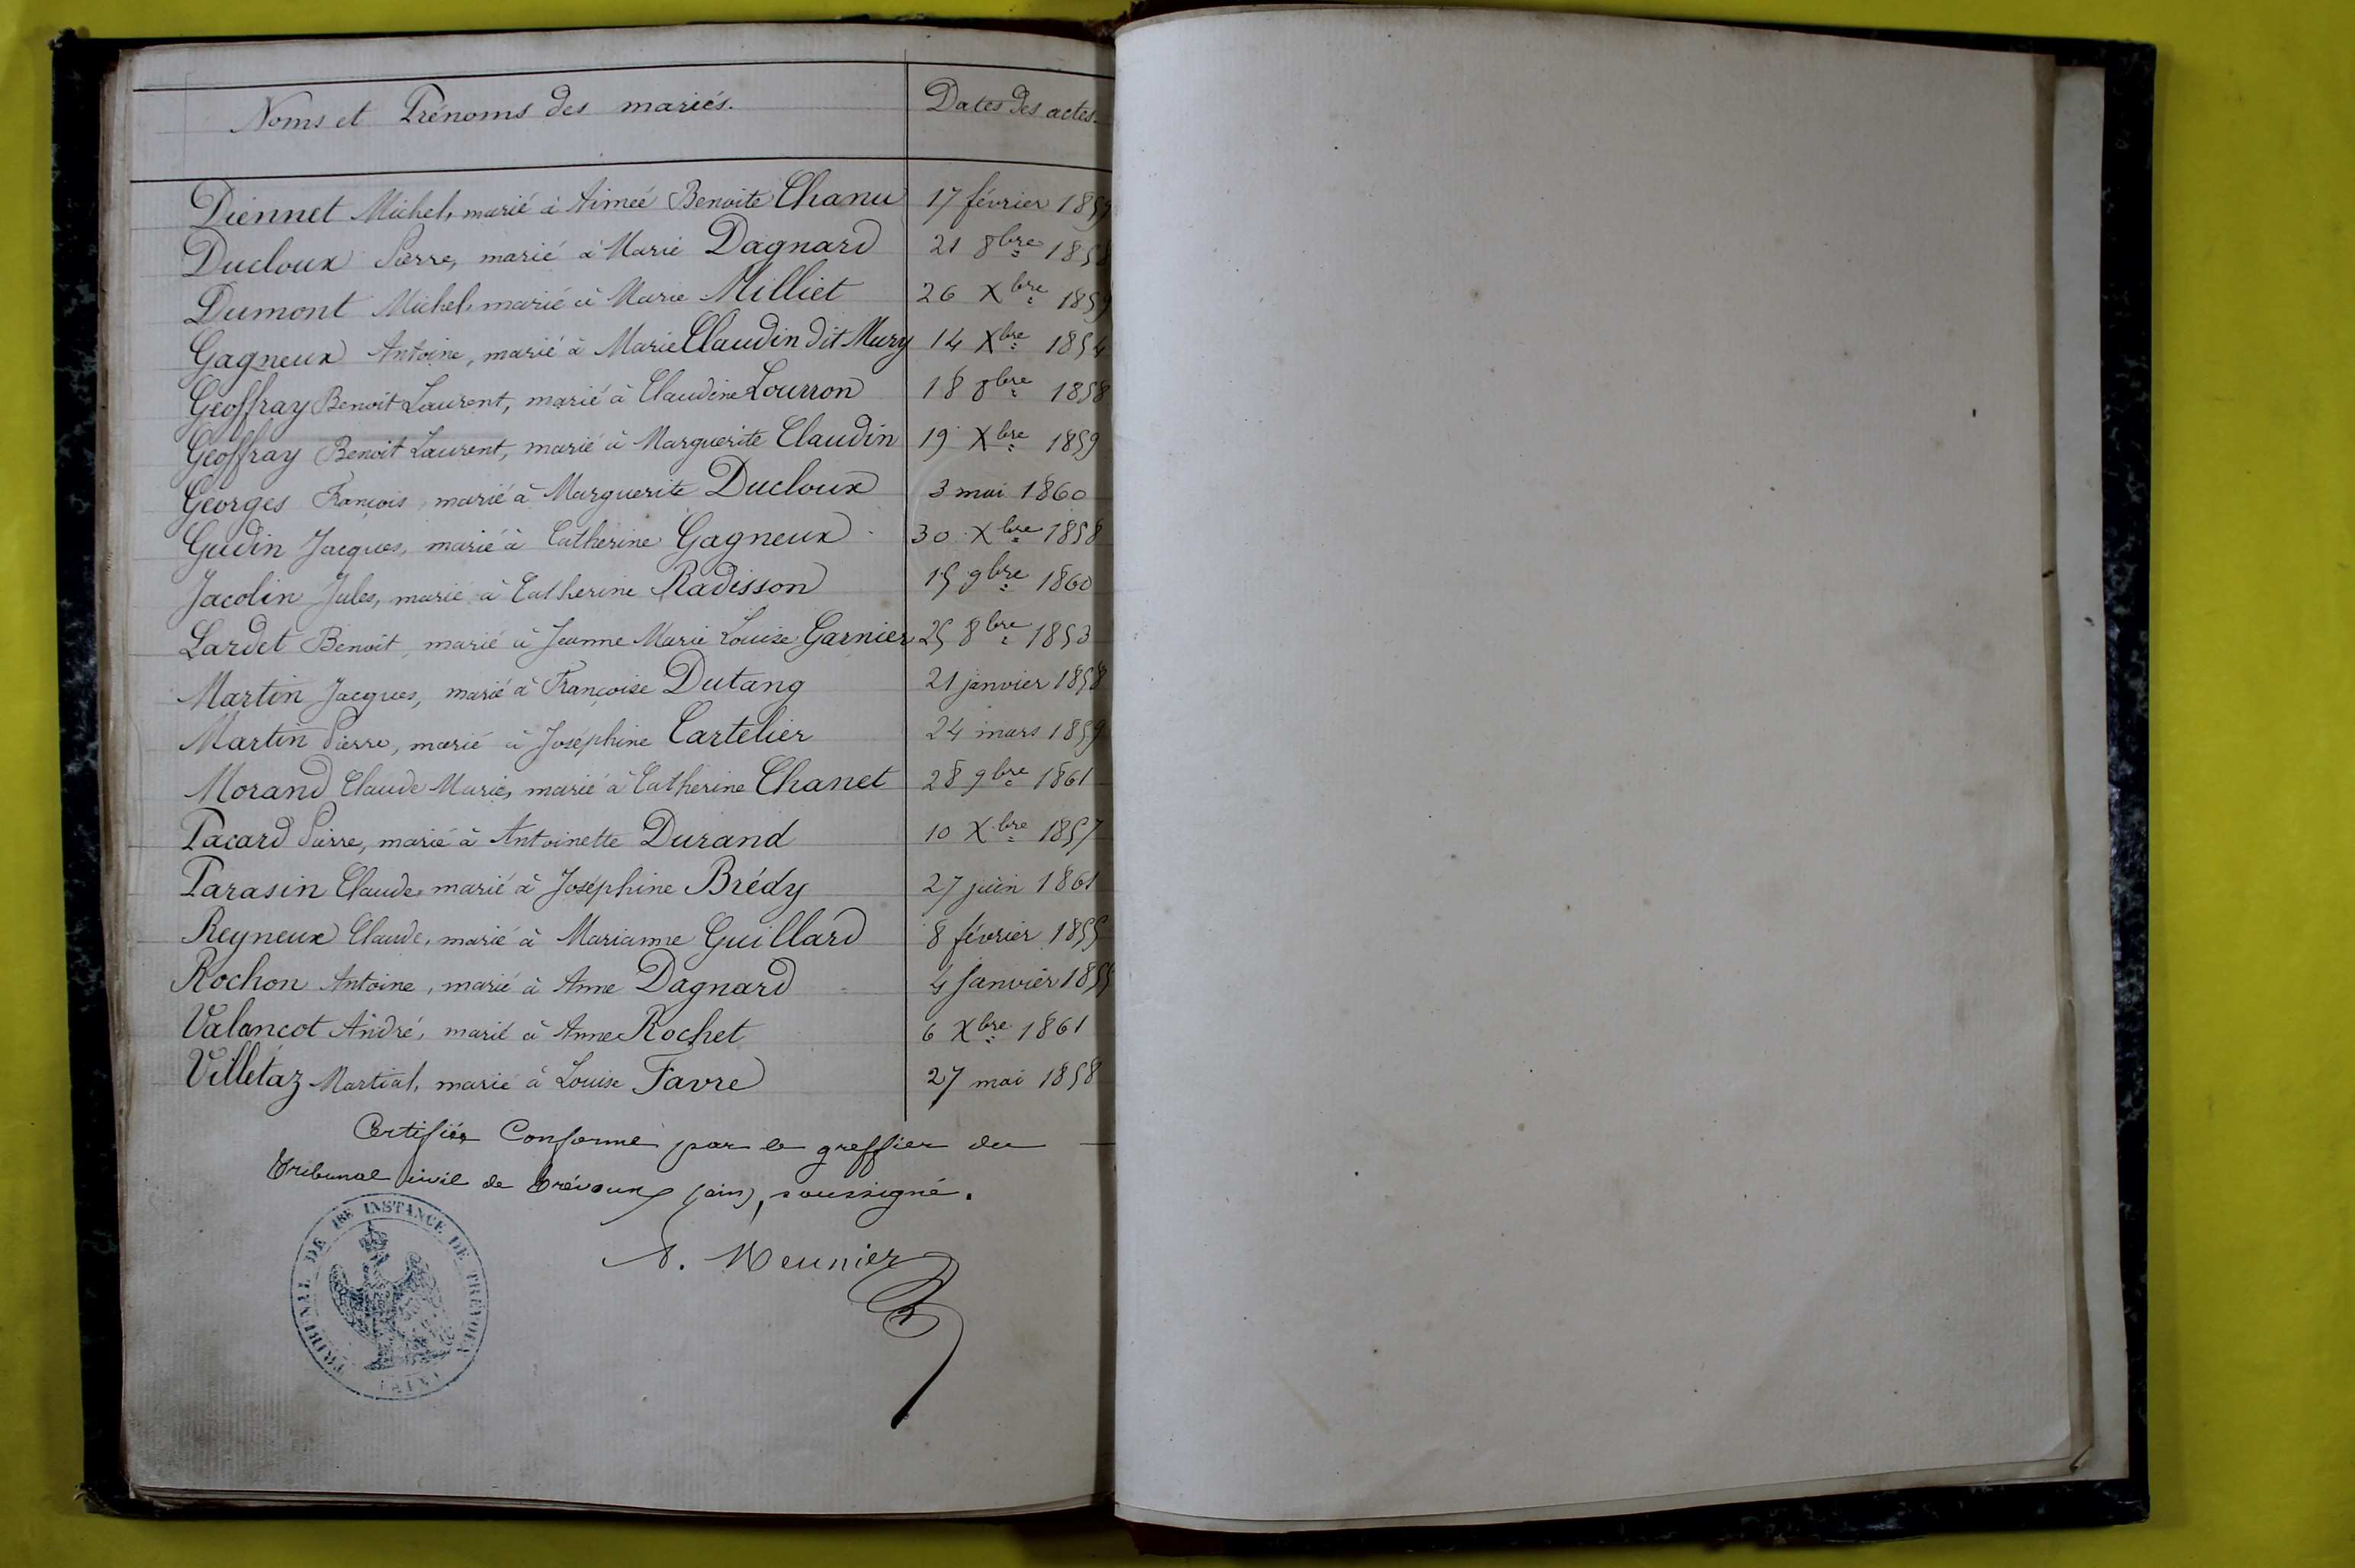 Noms et Prénoms des mariés. Dates des actes.
Diennet Michel, marié à Aimée Benoite Chanu 17 février 1859
Ducloux Pierre, marié à Marie Dagnard 21 8bre 1858
Dumont Michel, marié à Marie Milliet 26 Xbre 1859
Gagneux Antoine, marié à Marie Claudin dit Mury 14 Xbre 1854
Geoffray Benoit Laurent, marié à Claudine Lourron 18 8bre 1858
Geoffray Benoit Laurent, marié à Marguerite Claudin 19 Xbre 1859
Georges François, marié à Marguerite Ducloux 3 mai 1860
Gudin Jacques, marié à Catherine Gagneux 30 Xbre 1858
Jacolin Jules, marié à Catherine Radisson 15 9bre 1860
Lardet Benoit, marié à Jeanne Marie Louise Garnier 25 8bre 1853
Martin Jacques, marié à Françoise Dutang 21 janvier 1858
Martin Pierre, marié à Joséphine Cartelier 24 mars 1859
Morand Claude Marie, marié à Catherine Chanet 28 9bre 1861
Pacard Pierre, marié à Antoinette Durand 10 Xbre 1857
Parasin Claude, marié à Joséphine Brédy 27 juin 1861
Reyneux Claude, marié à Marianne Guillard 8 février 1855
Rochon Antoine, marié à Anne Dagnard 4 Janvier 1855
Valancot André, marié à Anne Rochet 6 Xbre 1861
Villetaz Martial, marié à Louise Favre 27 mai 1858
Certifiée Conforme par le greffier du
Tribunal Civil de Trévoux (ain), soussigné.
Meunier
TRIBUNAL DE 1RE INSTANCE DE TREVOUX
(AIN)